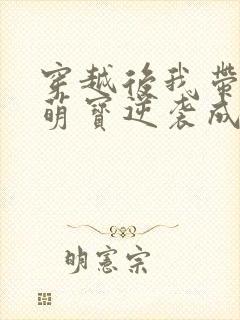 穿越後我帶
萌寶逆袭成
明憲宗